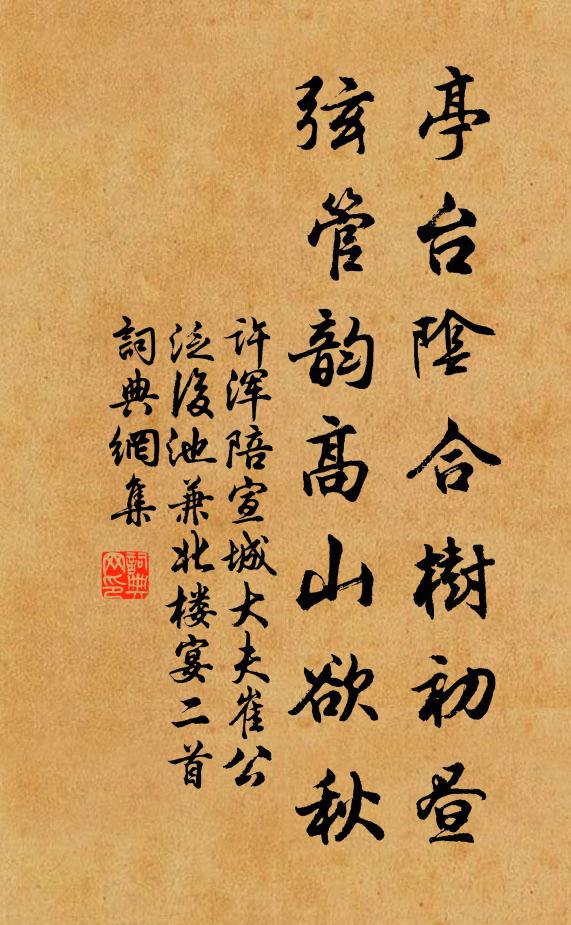 亭台陰合樹初昼
弦管韵高山欲秋
許渾陪宣城大夫崔公
泛後池兼北楼宴二首
詞典網集
詞典网印